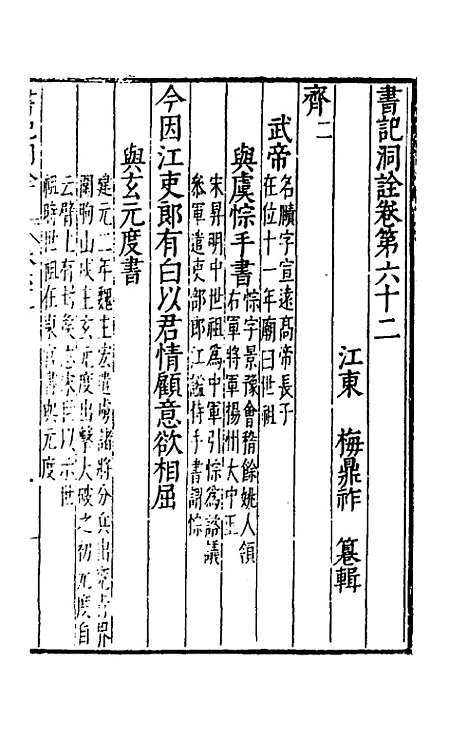 書記洞詮卷第六十二
江東　梅鼎祚　篡輯
齊二
武帝
名賾字宣遠高帝長子
在位十一年廟曰世祖
與虞悰手書
悰字景豫會稽餘姚人領
右軍將軍揚州大中正
宋昇明中世祖為中軍引悰為諮議
叅軍遣吏部郎江謐侍手書謂悰
今因江吏郎有白以君情顧意欲相屈
與玄元度書
建元二年魏主宏遣虜諸將分兵出兖青界
圍朐山戍主玄元度出擊大破之初元度自
云臂上有
世祖在東宮書與元度